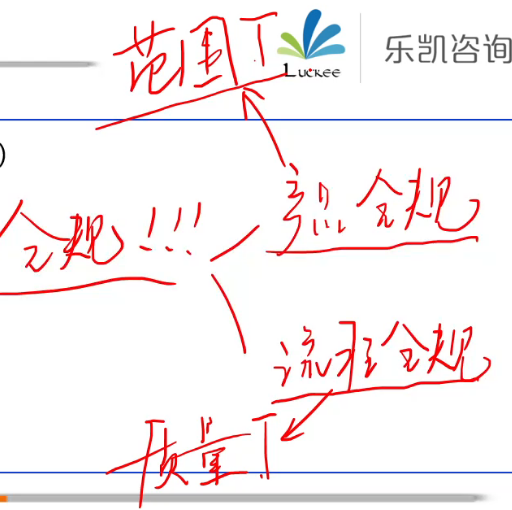 范围T
LUCKEE
乐凯咨询
)
产品合规
合规!!!
流程合规
质量T